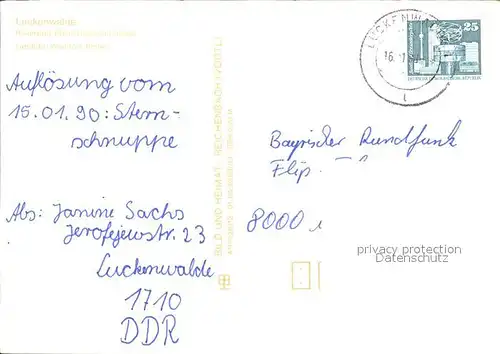 Luckenwalde
Auflösung vom
15.01.90: Stern-
schnuppe
Abs: Janine Sachs
Jerofejewstr. 23
Luckenwalde
1710
DDR
BILD UND HEIMAT REICHENBACH (VOGTL)
LUCKENWALDE
16.
25
DEUTSCHE DEMOKRATISCHE REPUBLIK
Bayrischer Rundfunk
Flip
8000
privacy protection
Datenschutz